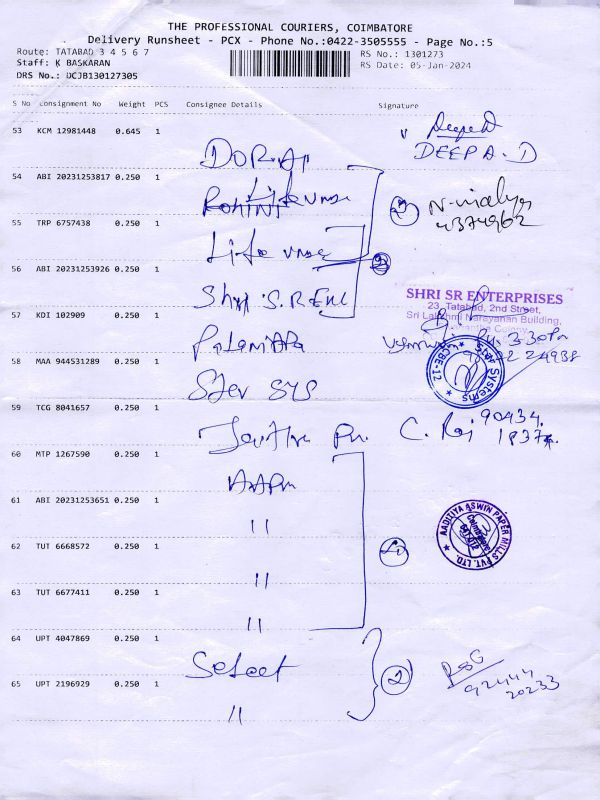 THE PROFESSIONAL COURIERS, COIMBATORE
Delivery Runsheet - PCX - Phone No.:0422-3505555 - Page No.:5
Route: TATABAD 3 4 5 6 7
RS No.: 1301273
Staff: K BASKARAN
RS Date: 05-Jan-2024
DRS No.: DCJB130127305
S No Consignment No Weight PCS Consignee Details Signature
53 KCM 12981448 0.645 1
DEEPA. D
54 ABI 20231253817 0.250 1
ROHINI
55 TRP 6757438 0.250 1
56 ABI 20231253926 0.250 1
SHRI SR ENTERPRISES
23, Tatabad, 2nd Street,
Sri Lakshmi Narayanan Building,
57 KDI 102909 0.250 1
58 MAA 944531289 0.250 1
Systems
CBE-12
59 TCG 8041657 0.250 1
C. Raj 90434.
60 MTP 1267590 0.250 1
61 ABI 20231253651 0.250 1
"
AADITIYA ASWIN PAPER MILLS PVT. LTD.
62 TUT 6668572 0.250 1
"
63 TUT 6677411 0.250 1
"
64 UPT 4047869 0.250 1
Select
2
65 UPT 2196929 0.250 1
92444
20233
"